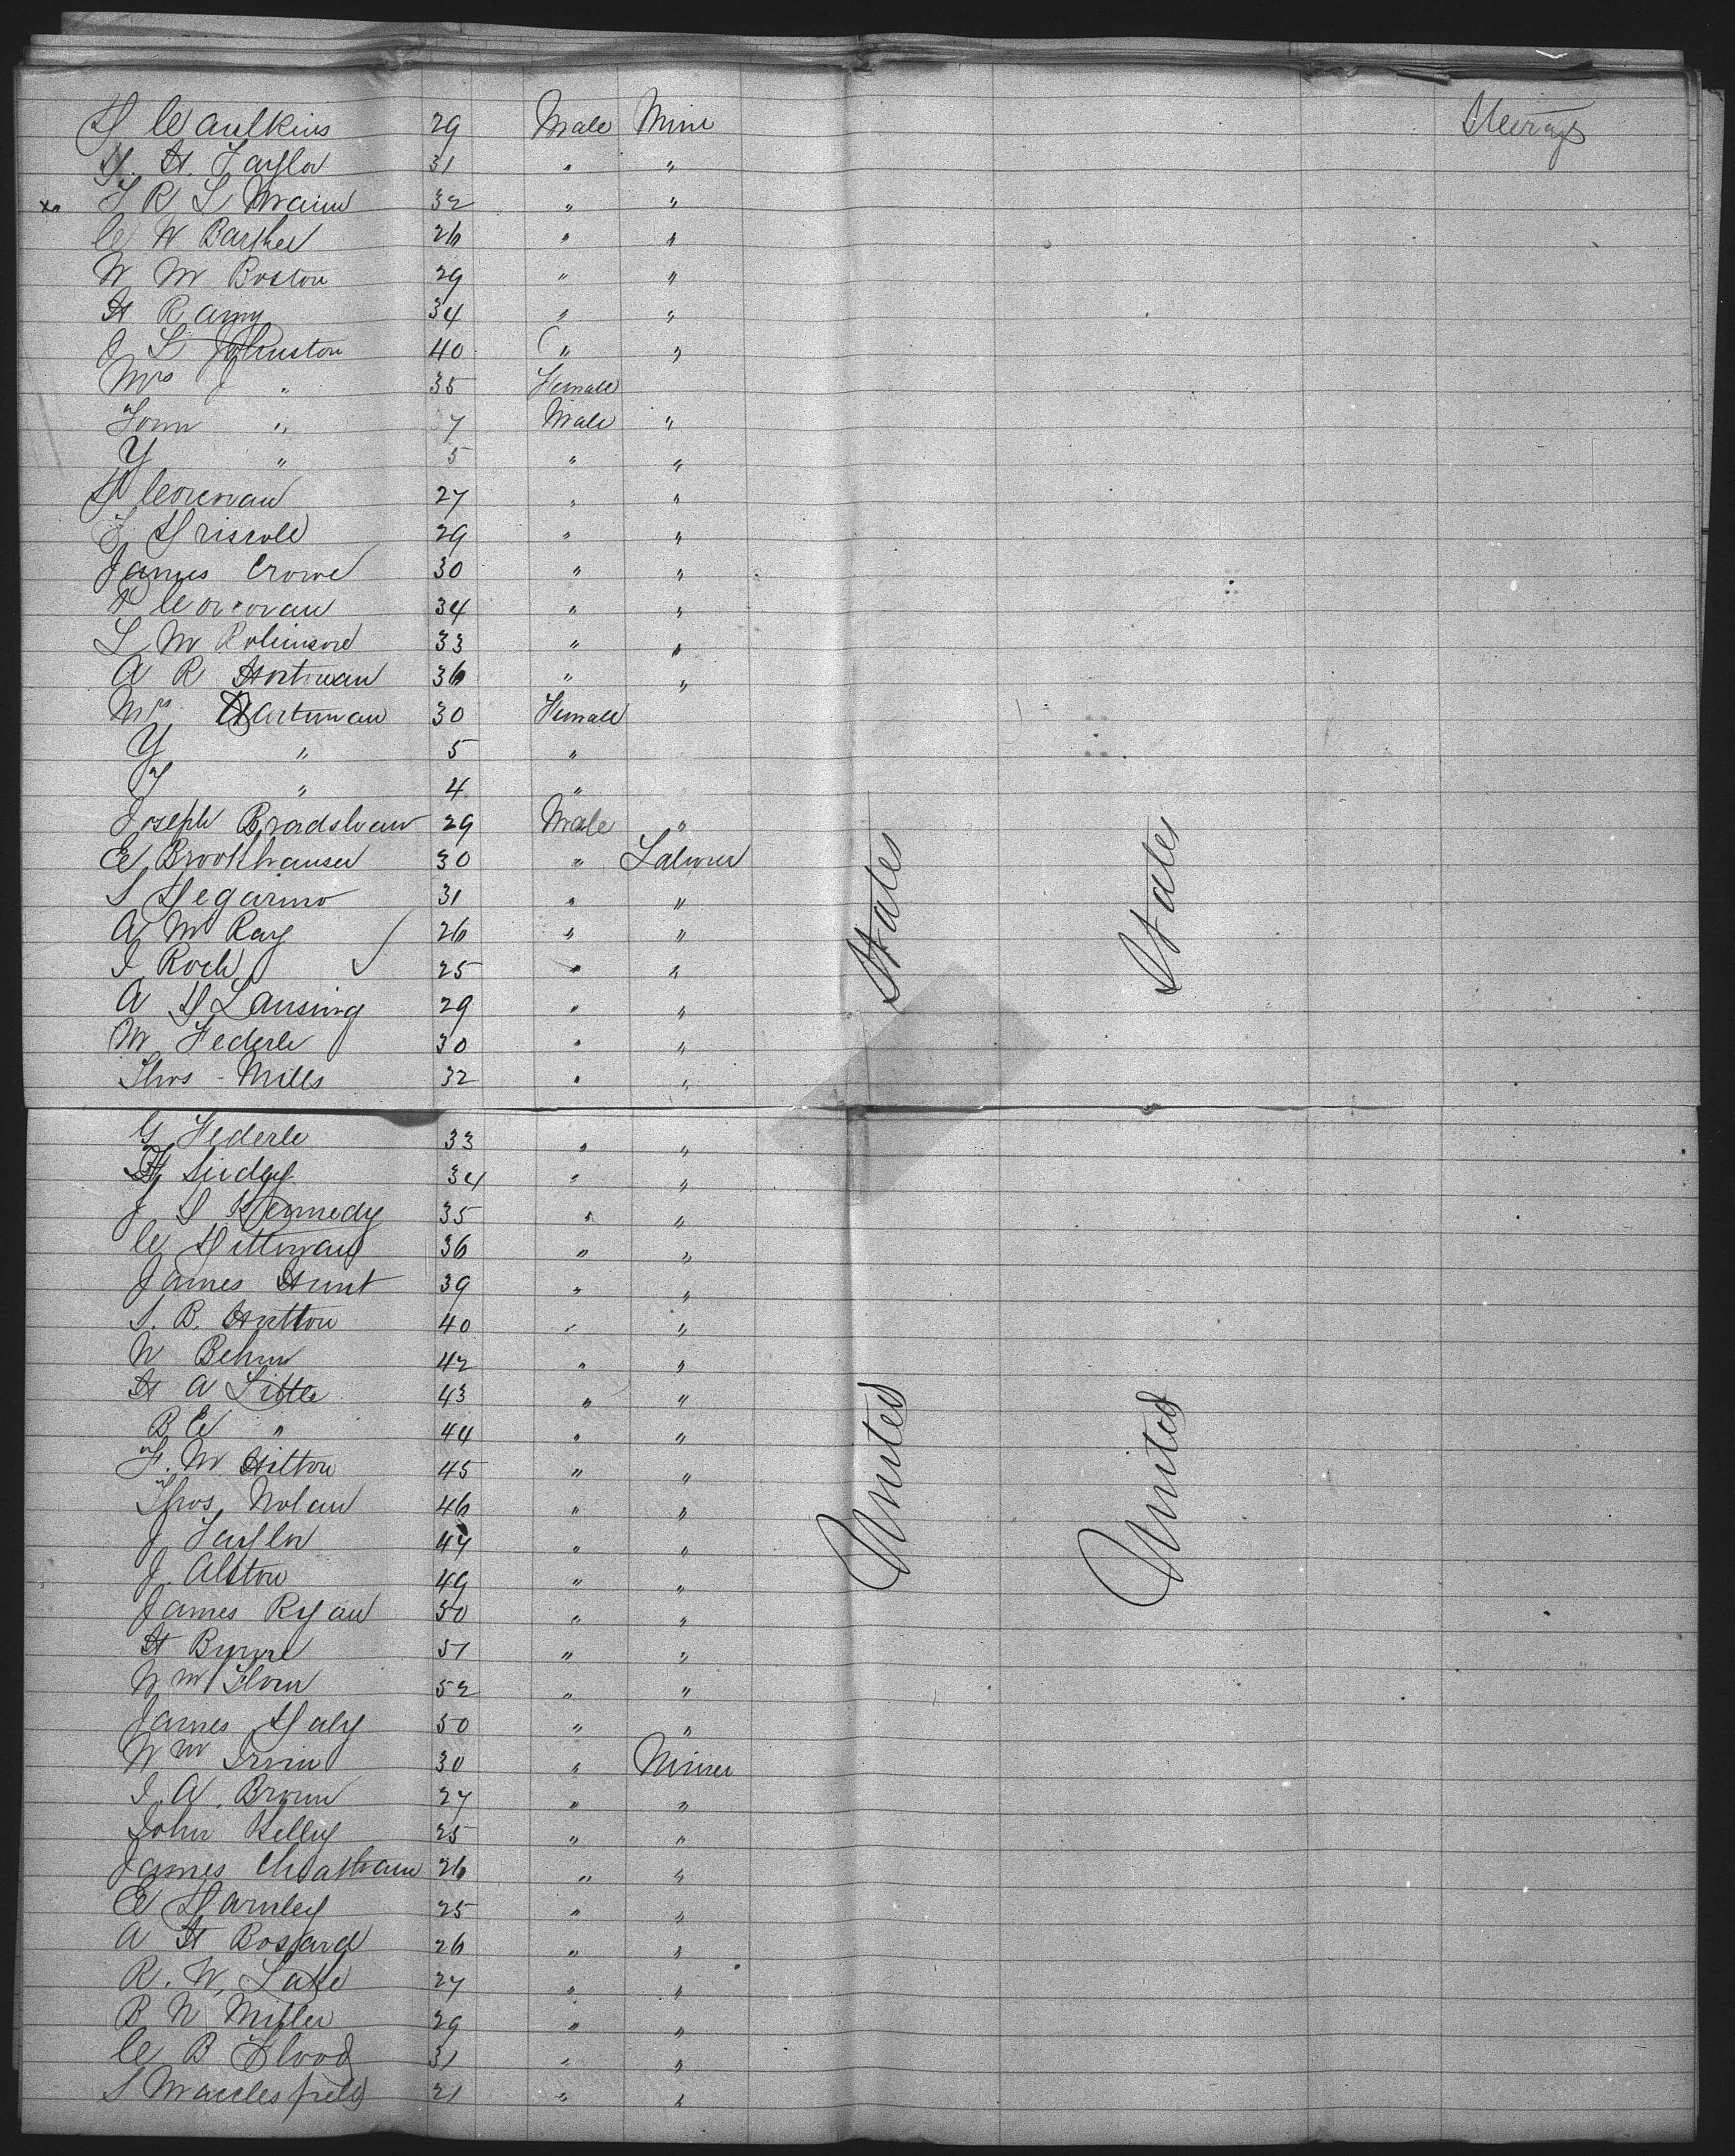 D Caulkins 29 Male Mine Steerage
D. H. Taylor 31 " "
T R L Mann 32 " "
C W Barther 26 " "
W M Boston 29 " "
H Ramy 34 " "
J L Johnston 40 " "
Mrs " 35 Female
Tom " 7 Male "
Y " 5 " "
D Corcoran 27 " "
J Driscole 29 " "
James Crowe 30 " "
P Corcoran 34 " "
L M Robinson 33 " "
A R Hartman 36 " "
Mrs Hartman 30 Female
Y " 5 "
Y " 4 "
Joseph Bradshaw 29 Male "
E Brookhauser 30 " Laborer
S Degarmo 31 " "
A McRay 26 " "
I Roch 25 " "
A D Lansing 29 " "
M Federle 30 " "
Thos - Mills 32 " "
G Federle 33 " "
34 " "
J D Kennedy 35 " "
C Dittman 36 " "
James Hunt 39 " "
S. B. Hutton 40 " "
W Behm 42 " "
H A Little 43 " "
B E " 44 " "
F. M Hilton 45 " "
Thos. Nolan 46 " "
J Taylor 47 " "
J. Alston 49 " "
James Ryan 50 " "
H Byrne 51 " "
Wm 52 " "
James Daly 50 " "
Wm Irvin 30 " Miner
I. A. Brown 27 " "
John Kelly 25 " "
James Cheatham 26 " "
E Darnley 25 " "
A H Bossard 26 " "
R. W. Lake 27 " "
B W Miller 29 " "
C B Flood 31 " "
S Macclesfield 21 " "
United States
United States